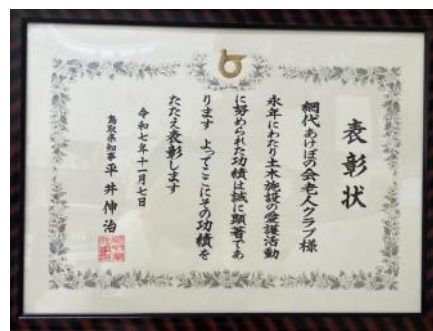 表彰状
網代あけぼの会老人クラブ様
永年にわたり土木施設の愛護活動
に努められた功績は誠に顕著であ
ります よってここにその功績を
たたえ表彰します
令和七年十一月七日
鳥取県知事 平井伸治